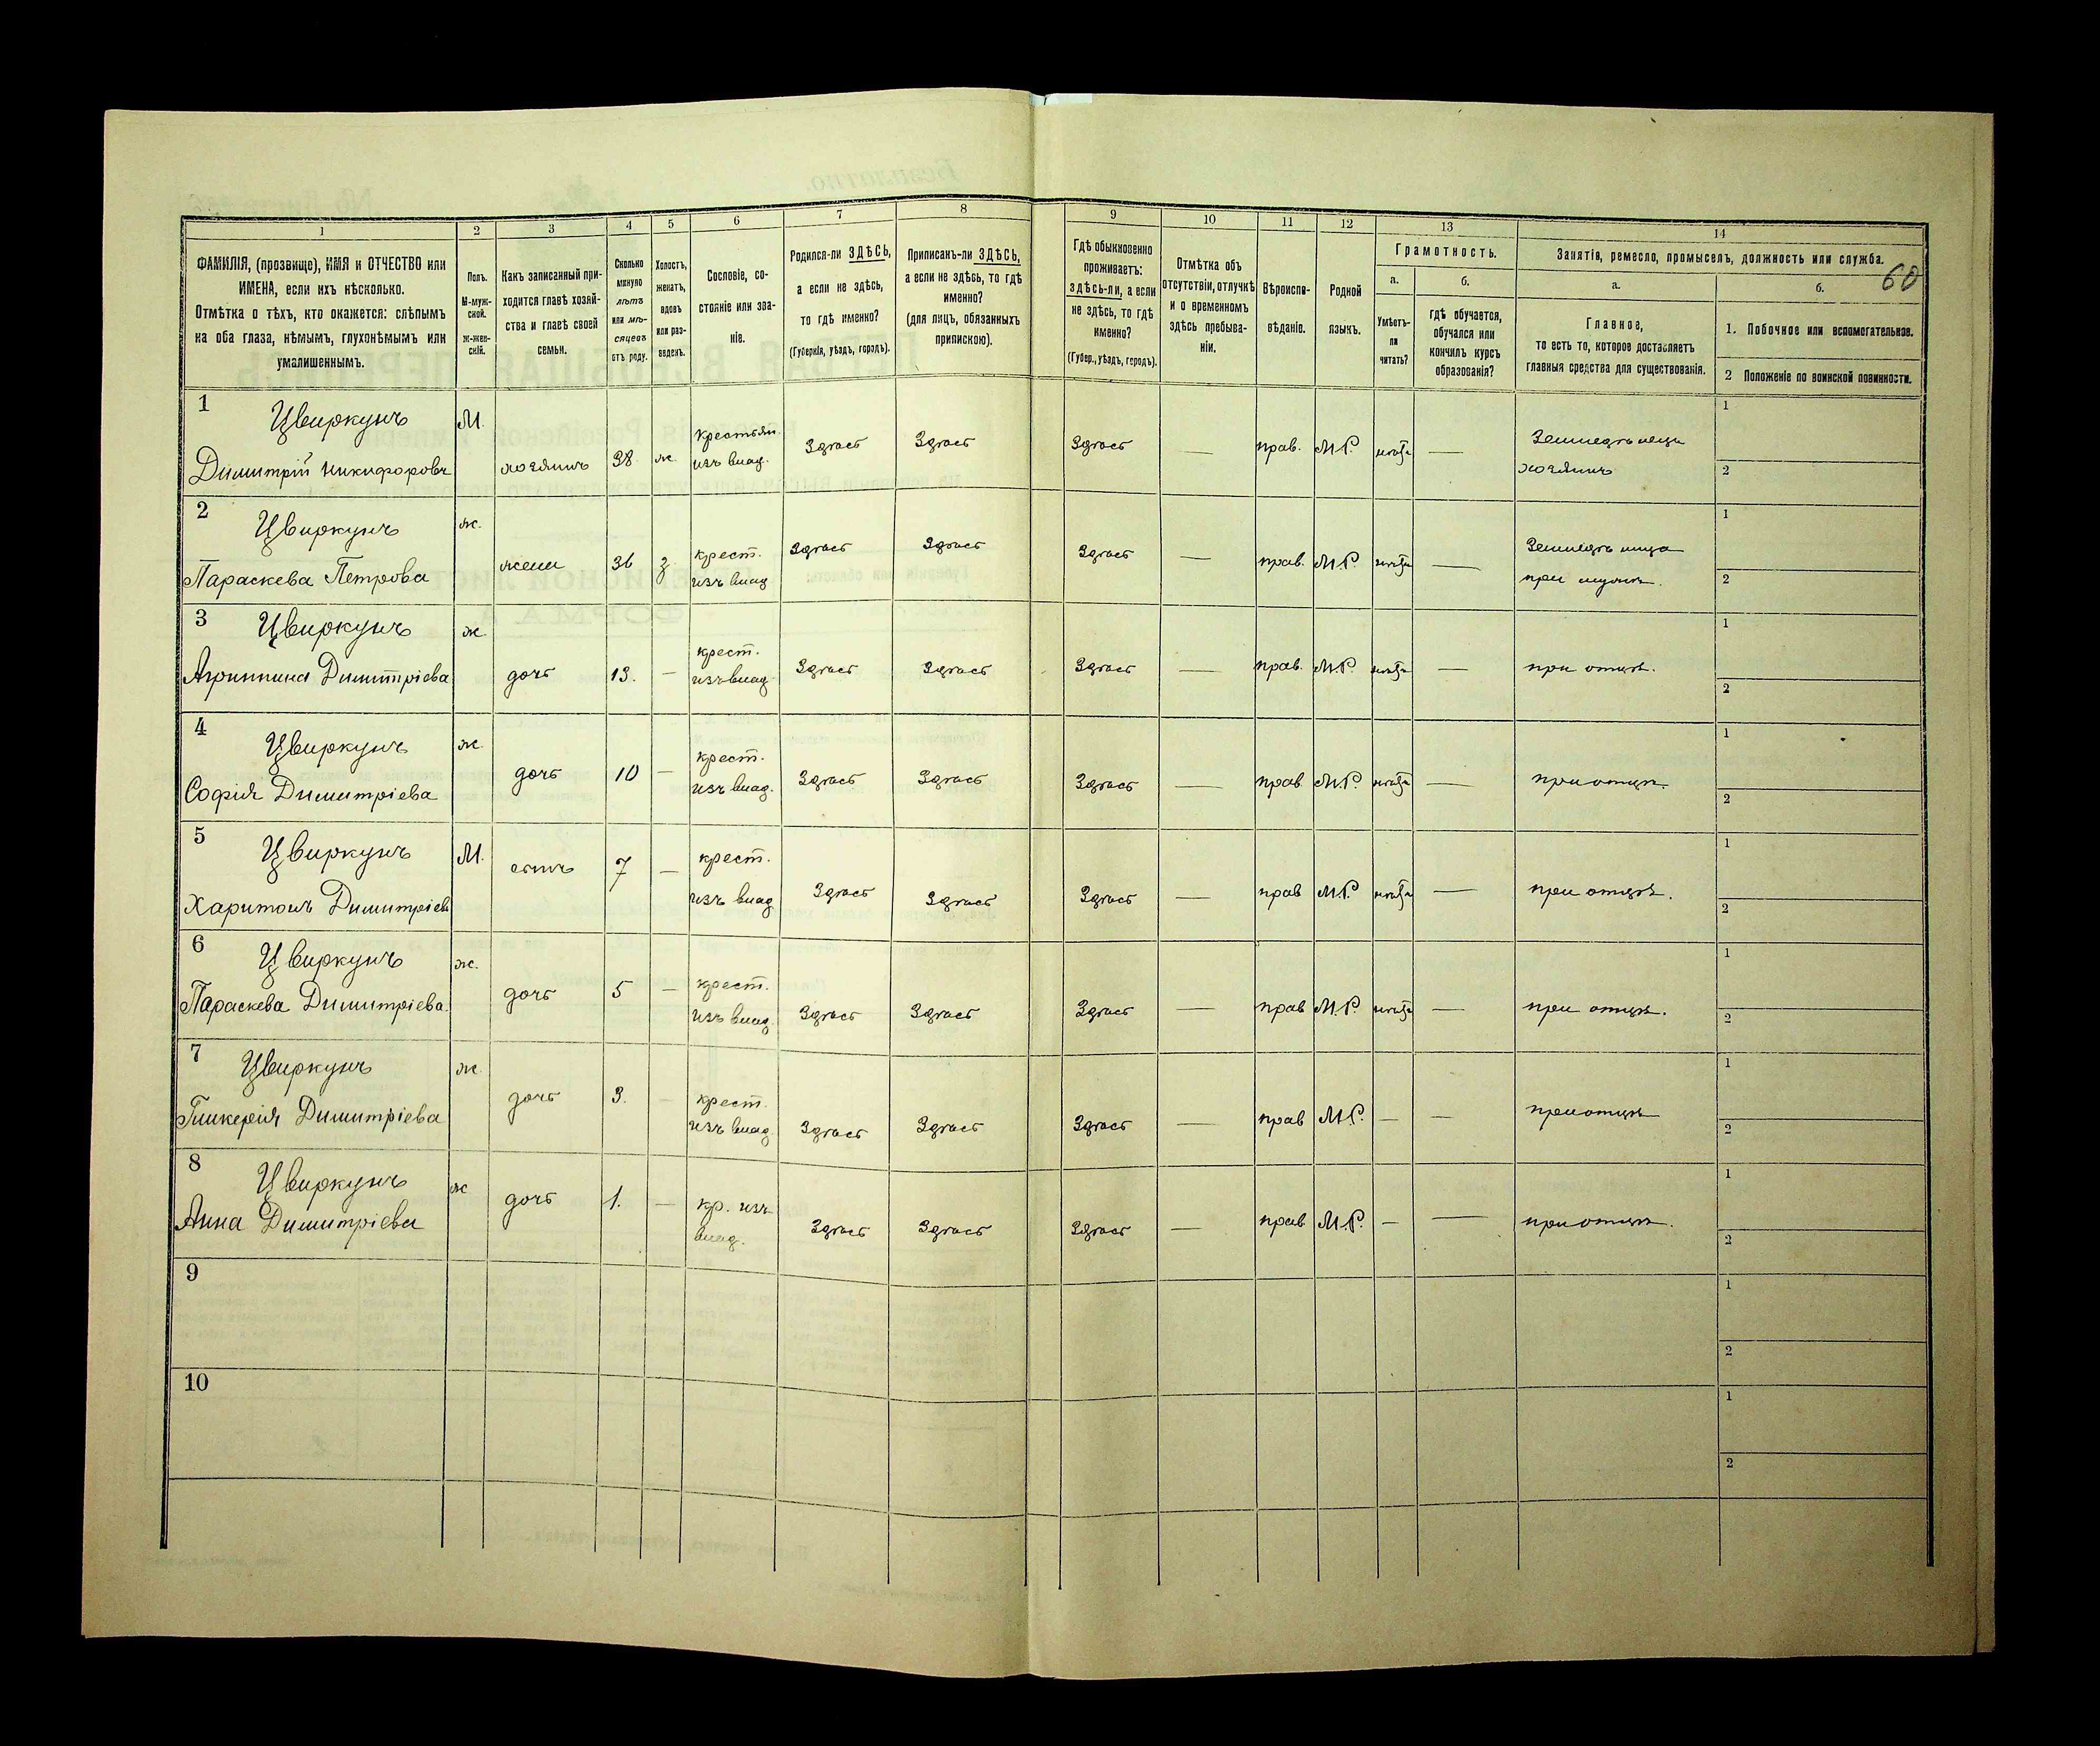 60
1 2 3 4 5 6 7 8 9 10 11 12 13 14
ФАМИЛІЯ, (прозвище), ИМЯ и ОТЧЕСТВО или
ИМЕНА, если ихъ нѣсколько.
Отмѣтка о тѣхъ, кто окажется: слѣпымъ
на оба глаза, нѣмымъ, глухонѣмымъ или
умалишеннымъ.
Полъ.
М-муж-
ской.
Ж-жен-
скій.
Какъ записанный при-
ходится главѣ хозяй-
ства и главѣ своей
семьи.
Сколько
минуло
лѣтъ
или мѣ-
сяцевъ
отъ роду.
Холостъ,
женатъ,
вдовъ
или раз-
веденъ.
Сословіе, со-
стояніе или зва-
ніе.
Родился-ли ЗДѢСЬ,
а если не здѣсь,
то гдѣ именно?
(Губернія, уѣздъ, городъ).
Приписанъ-ли ЗДѢСЬ,
а если не здѣсь, то гдѣ
именно?
(для лицъ, обязанныхъ
припискою).
Гдѣ обыкновенно
проживаетъ:
здѣсь-ли, а если
не здѣсь, то гдѣ
именно?
(Губер., уѣздъ, городъ).
Отмѣтка объ
отсутствіи, отлучкѣ
и о временномъ
здѣсь пребыва-
ніи.
Вѣроиспо-
вѣданіе.
Родной
языкъ.
Грамотность.
а.
Умѣетъ-
ли
читать?
б.
гдѣ обучается,
обучался или
кончилъ курсъ
образованія?
Занятія, ремесло, промыселъ, должность или служба.
а.
Главное,
то есть то, которое доставляетъ
главныя средства для существованія.
б.
1. Побочное или вспомогательное.
2 Положеніе по воинской повинности.
1 Цвиркунъ М. крестьян. Здѣсь Здѣсь Здѣсь — прав. М.Р. — 1
Димитрій Никифоровъ хозяинъ 38 ж. изъ влад. хозяинъ 2
2 Цвиркунъ ж. крест. Здѣсь Здѣсь Здѣсь — прав. М.Р. — 1
Параскева Петрова жена 36 з изъ влад при мужѣ. 2
3 Цвиркунъ ж. крест. Здѣсь Здѣсь Здѣсь — прав. М.Р. — при отцѣ. 1
Агриппина Димитріева дочь 13. — изъ влад. 2
4 Цвиркунъ ж. крест. Здѣсь Здѣсь Здѣсь — прав М.Р. — при отцѣ. 1
Софія Димитріева дочь 10 — изъ влад. 2
5 Цвиркунъ М. сынъ 7 — крест. Здѣсь Здѣсь Здѣсь — прав М.Р. — при отцѣ. 1
Харитонъ Димитріев изъ влад 2
6 Цвиркунъ ж. дочь 5 — крест. Здѣсь Здѣсь Здѣсь — прав М.Р. — при отцѣ. 1
Параскева Димитріева. изъ влад. 2
7 Цвиркунъ ж дочь 3. — крест. Здѣсь Здѣсь Здѣсь — прав М.Р. — — при отцѣ 1
Гликерія Димитріева изъ влад. 2
8 Цвиркунъ ж дочь 1. — кр. изъ Здѣсь Здѣсь Здѣсь — прав М.Р. — — при отцѣ. 1
Анна Димитріева влад. 2
9 1
2
10 1
2